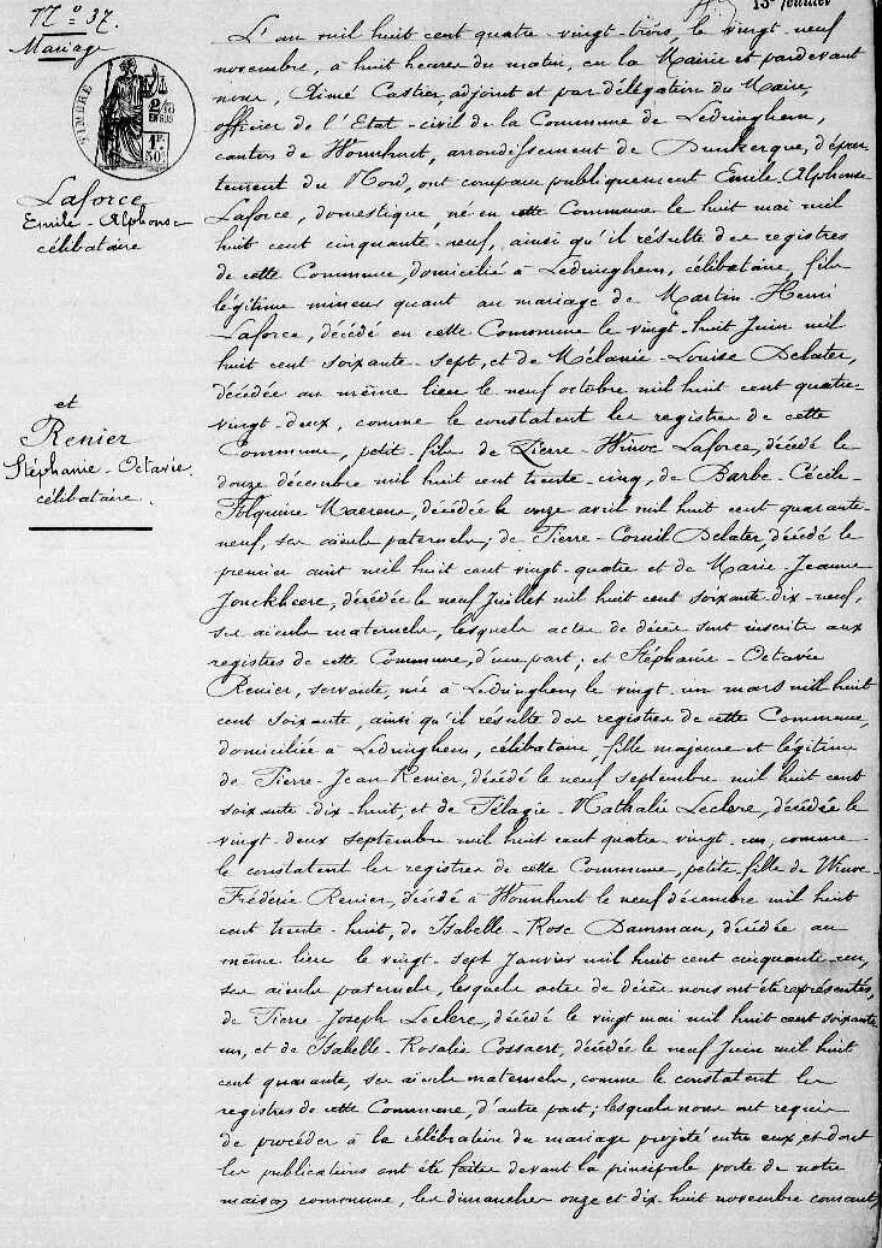 N° 37.
Mariage
TIMBRE
2/10
EN SUS
1F.
50c
Laforce
Emile-Alphonse
célibataire
et
Renier
Stéphanie-Octavie.
célibataire.
13e février
L'an mil huit cent quatre-vingt-trois, le vingt-neuf
novembre, à huit heures du matin, en la Mairie et pardevant
nous, Aimé Castier, adjoint et par délégation du Maire,
officier de l'Etat-civil de la Commune de Ledringhem,
canton de Wormhout, arrondissement de Dunkerque, dépar-
tement du Nord, ont comparu publiquement Emile-Alphonse
Laforce, domestique, né en cette Commune le huit mai mil
huit cent cinquante-neuf, ainsi qu'il résulte des registres
de cette Commune, domicilié à Ledringhem, célibataire, fils
légitime mineur quant au mariage de Martin-Henri
Laforce, décédé en cette Commune le vingt-huit Juin mil
huit cent soixante-sept, et de Mélanie-Louise Delater,
décédée au même lieu le neuf octobre mil huit cent quatre-
vingt-deux, comme le constatent les registres de cette
Commune, petit-fils de Pierre-Winoc Laforce, décédé le
douze décembre mil huit cent trente-cinq, de Barbe-Cécile-
Folquine Maerene, décédée le onze avril mil huit cent quarante-
neuf, ses aïeuls paternels; de Pierre-Cornil Delater, décédé le
premier août mil huit cent vingt-quatre et de Marie-Jeanne
Jonckheere, décédée le neuf Juillet mil huit cent soixante-dix-neuf,
ses aïeuls maternels, lesquels actes de décès sont inscrits aux
registres de cette Commune, d'une part; et Stéphanie-Octavie
Renier, servante, née à Ledringhem le vingt-un mars mil huit
cent soixante, ainsi qu'il résulte des registres de cette Commune,
domiciliée à Ledringhem, célibataire, fille majeure et légitime
de Pierre-Jean Renier, décédé le neuf septembre mil huit cent
soixante-dix-huit, et de Pélagie-Nathalie Leclerc, décédée le
vingt-deux septembre mil huit cent quatre-vingt-un, comme
le constatent les registres de cette Commune, petite-fille de Winoc-
Frédéric Renier, décédé à Wormhout le neuf décembre mil huit
cent trente-huit, de Isabelle-Rose Damman, décédée au
même lieu le vingt-sept Janvier mil huit cent cinquante-un,
ses aïeuls paternels, lesquels actes de décès nous ont été représentés,
de Pierre-Joseph Leclerc, décédé le vingt mai mil huit cent soixante
un, et de Isabelle-Rosalie Cossaert, décédée le neuf Juin mil huit
cent quarante, ses aïeuls maternels, comme le constatent les
registres de cette Commune, d'autre part; lesquels nous ont requis
de procéder à la célébration du mariage projeté entre eux, et dont
les publications ont été faites devant la principale porte de notre
maison commune, les dimanches onze et dix-huit novembre courant,